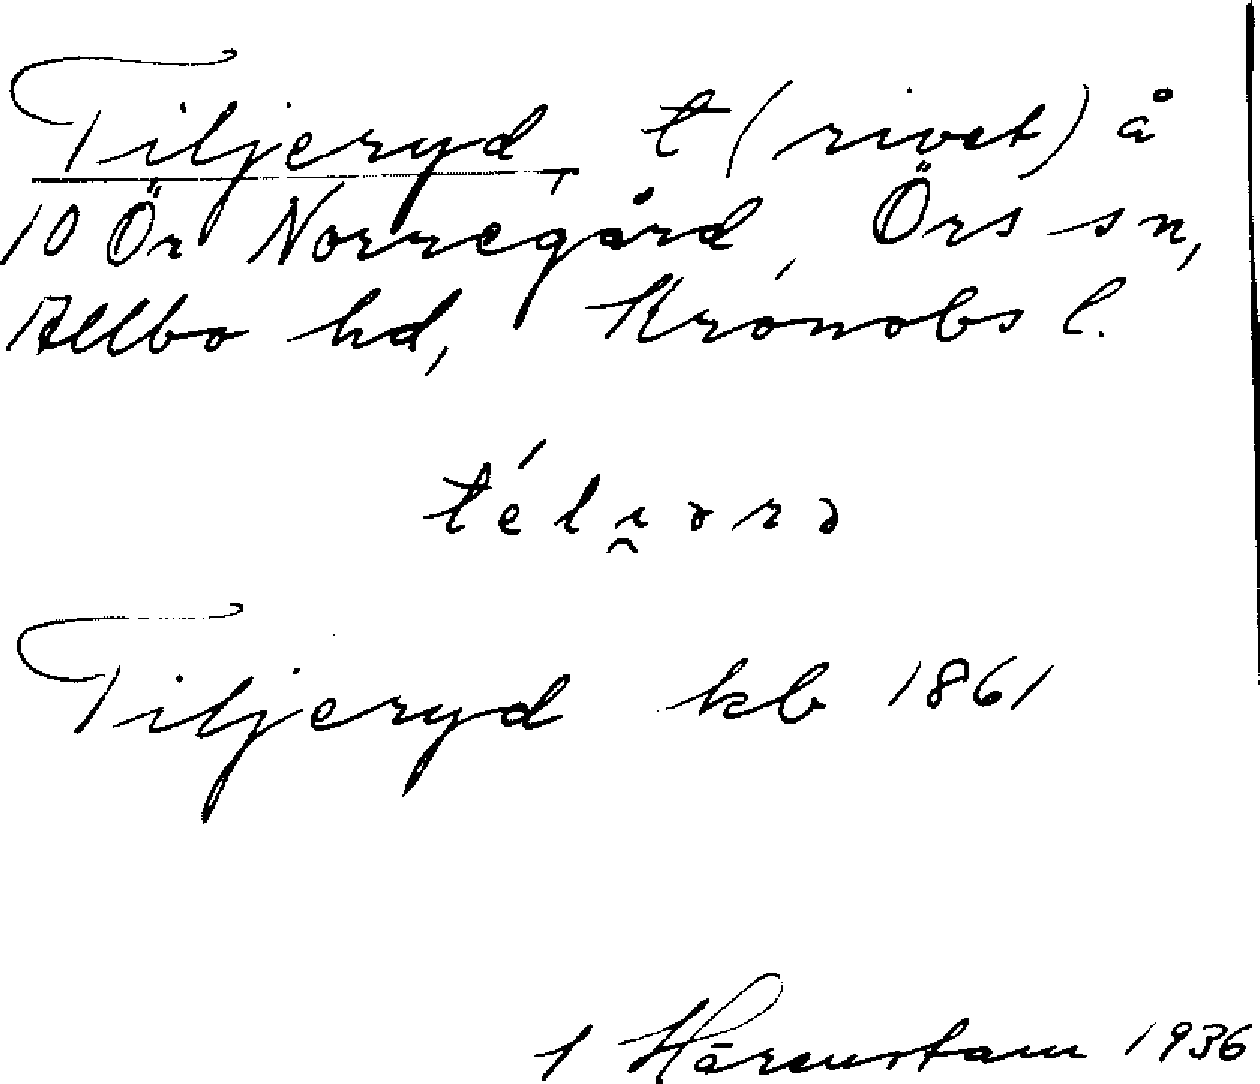 Tiljeryd, t (rivet) å
10 Ör Norregård, Örs sn,
Allbo hd, Kronobs l.
téli̯ərə
Tiljeryd kb 1861
1 Hårenstam 1936